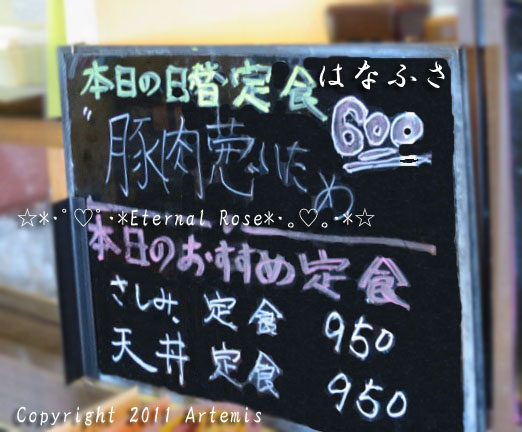 本日の日替定食 はなふさ
豚肉葱いため 600
☆*･ﾟ♡ﾟ･*Eternal Rose*･｡♡｡･*☆
本日のおすすめ定食
さしみ、定食 950
天丼定食 950
Copyright 2011 Artemis